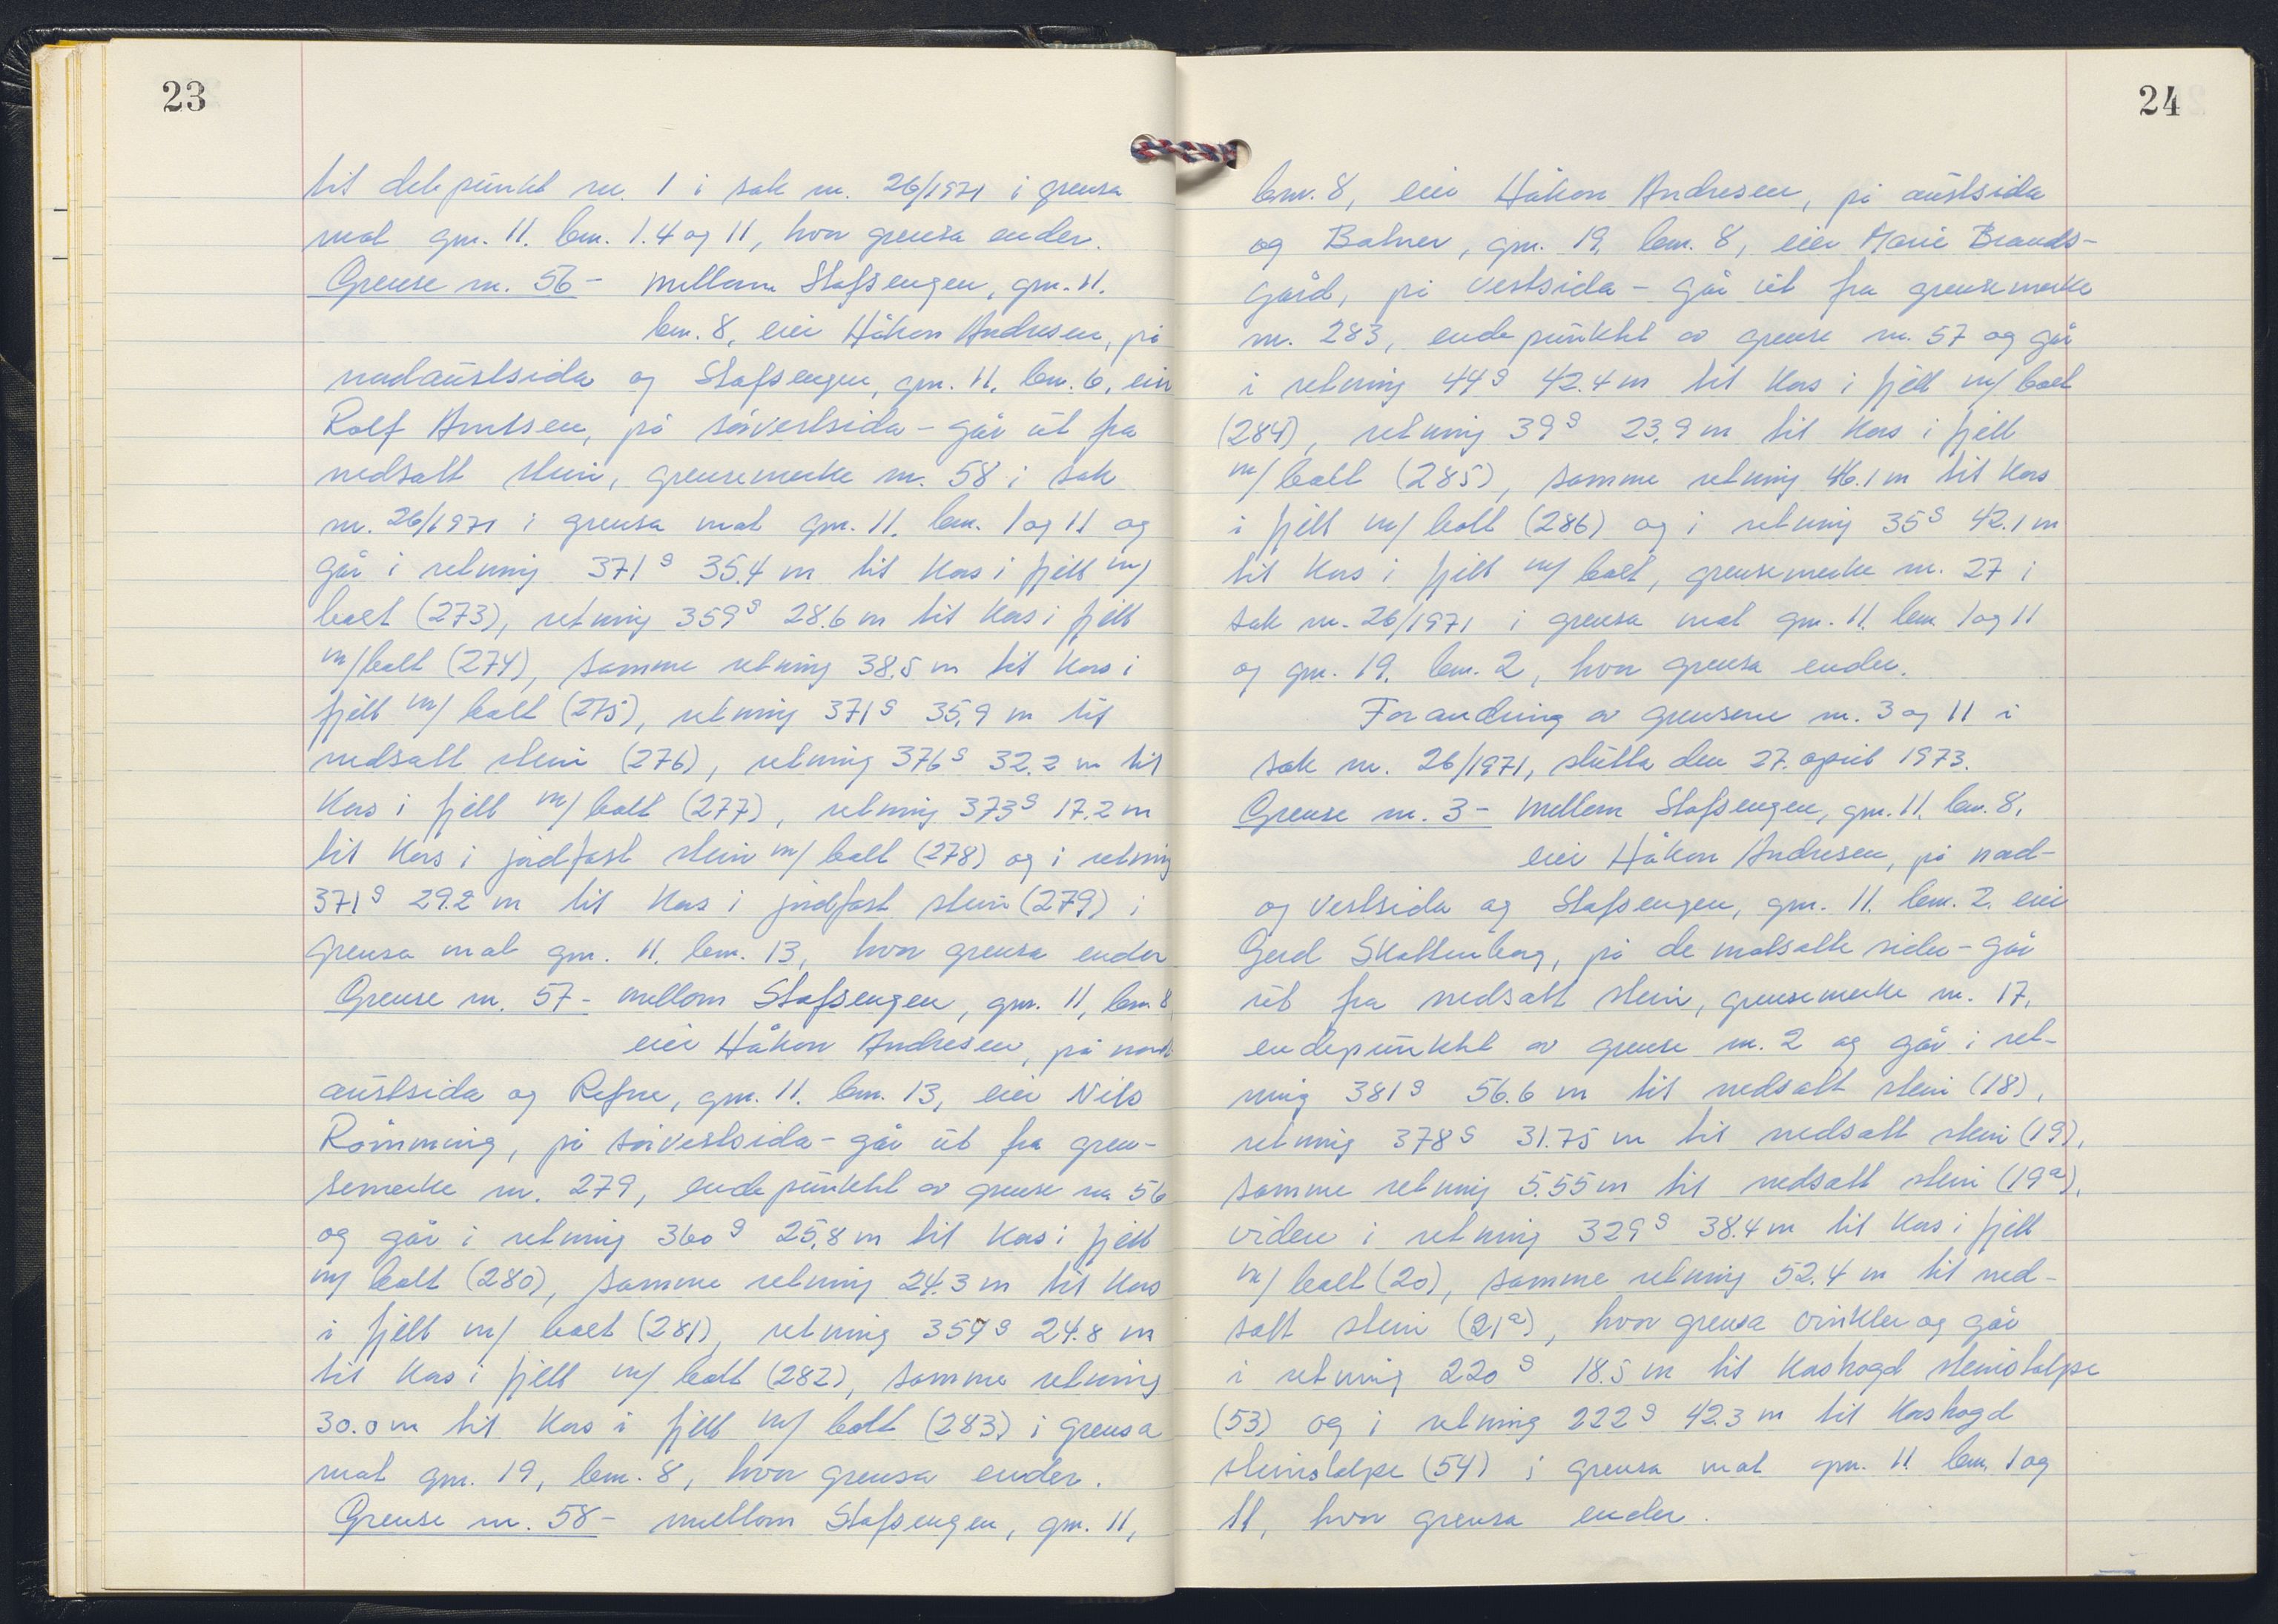 23
til delepunkt nr. 1 i sak nr. 26/1971 i grensa
mot gnr. 11. bnr. 1.4 og 11, hvor grensa ender.
Grense nr. 56 - mellom Stafsengen, gnr. 11.
bnr. 8, eier Håkon Andresen, på
nordaustsida og Stafsengen, gnr. 11. bnr. 6, eier
Rolf Arntsen, på sørvestsida - går ut fra
nedsatt stein, grensemerke nr. 58 i sak
nr. 26/1971 i grensa mot gnr. 11. bnr. 1 og 11 og
går i retning 371 g 35.4 m til kors i fjell m/
bolt (273), retning 359 g 28.6 m til kors i fjell
m/bolt (274), samme retning 38.5 m til kors i
fjell m/ bolt (275), retning 371 g 35.9 m til
nedsatt stein (276), retning 376 g 32.2 m til
kors i fjell m/ bolt (277), retning 373 g 17.2 m
til kors i jordfast stein m/ bolt (278) og i retning
371 g 29.2 m til kors i jordfast stein (279) i
grensa mot gnr. 11. bnr. 13, hvor grensa ender
Grense nr. 57 - mellom Stafsengen, gnr. 11, bnr. 8,
eier Håkon Andresen, på nord-
austsida og Refne, gnr. 11. bnr. 13, eier Nils
Rømming, på sørvestsida - går ut fra gren-
semerke nr. 279, endepunktet av grense nr. 56
og går i retning 360 g 25.8 m til kors i fjell
m/ bolt (280), samme retning 24.3 m til kors
i fjell m/ bolt (281), retning 359 g 24.8 m
til kors i fjell m/ bolt (282), samme retning
30.0 m til kors i fjell m/ bolt (283) i grensa
mot gnr. 19, bnr. 8, hvor grensa ender.
Grense nr. 58 - mellom Stafsengen, gnr. 11,
24
bnr. 8, eier Håkon Andresen, på austsida
og Batner, gnr. 19, bnr. 8, eier Marie Brands-
gård, på vestsida - går ut fra grensemerke
nr. 283, endepunktet av grense nr. 57 og går
i retning 44 g 42.4 m til kors i fjell m/ bolt
(284), retning 39 g 23.9 m til kors i fjell
m/ bolt (285), samme retning 46.1 m til kors
i fjell m/ bolt (286) og i retning 35 g 42.1 m
til kors i fjell m/ bolt, grensemerke nr. 27 i
sak nr. 26/1971 i grensa mot gnr. 11. bnr. 1 og 11
og gnr. 19. bnr. 2, hvor grensa ender.
Forandring av grensene nr. 3 og 11 i
sak nr. 26/1971, slutta den 27. april 1973.
Grense nr. 3 - mellom Stafsengen, gnr. 11. bnr. 8,
eier Håkon Andresen, på nord-
og vestsida og Stafsengen, gnr. 11. bnr. 2. eier
Gerd Skattenborg, på de motsatte sider - går
ut fra nedsatt stein, grensemerke nr. 17,
endepunktet av grense nr. 2 og går i ret-
ning 381 g 56.6 m til nedsatt stein (18),
retning 378 g 31.75 m til nedsatt stein (19),
samme retning 5.55 m til nedsatt stein (19a),
videre i retning 329 g 38.4 m til kors i fjell
m/ bolt (20), samme retning 52.4 m til ned-
satt stein (21a), hvor grensa vinkler og går
i retning 220 g 18.5 m til korshogd steinstolpe
(53) og i retning 222 g 42.3 m til korshogd
steinstolpe (54) i grensa mot gnr. 11. bnr. 1 og
11, hvor grensa ender.